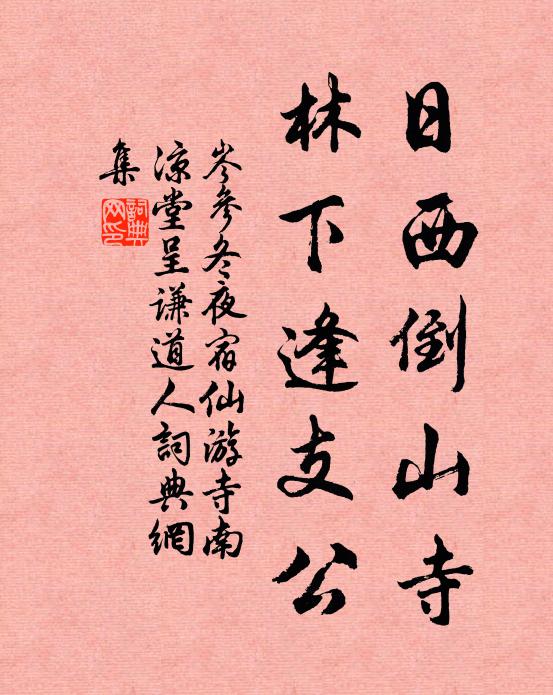 日西倒山寺
林下逢支公
岑參冬夜宿仙游寺南
涼堂呈謙道人詞典網
集
詞典
网印